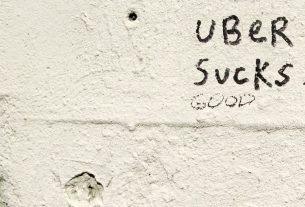 UBER
SUCKS.
GOOD